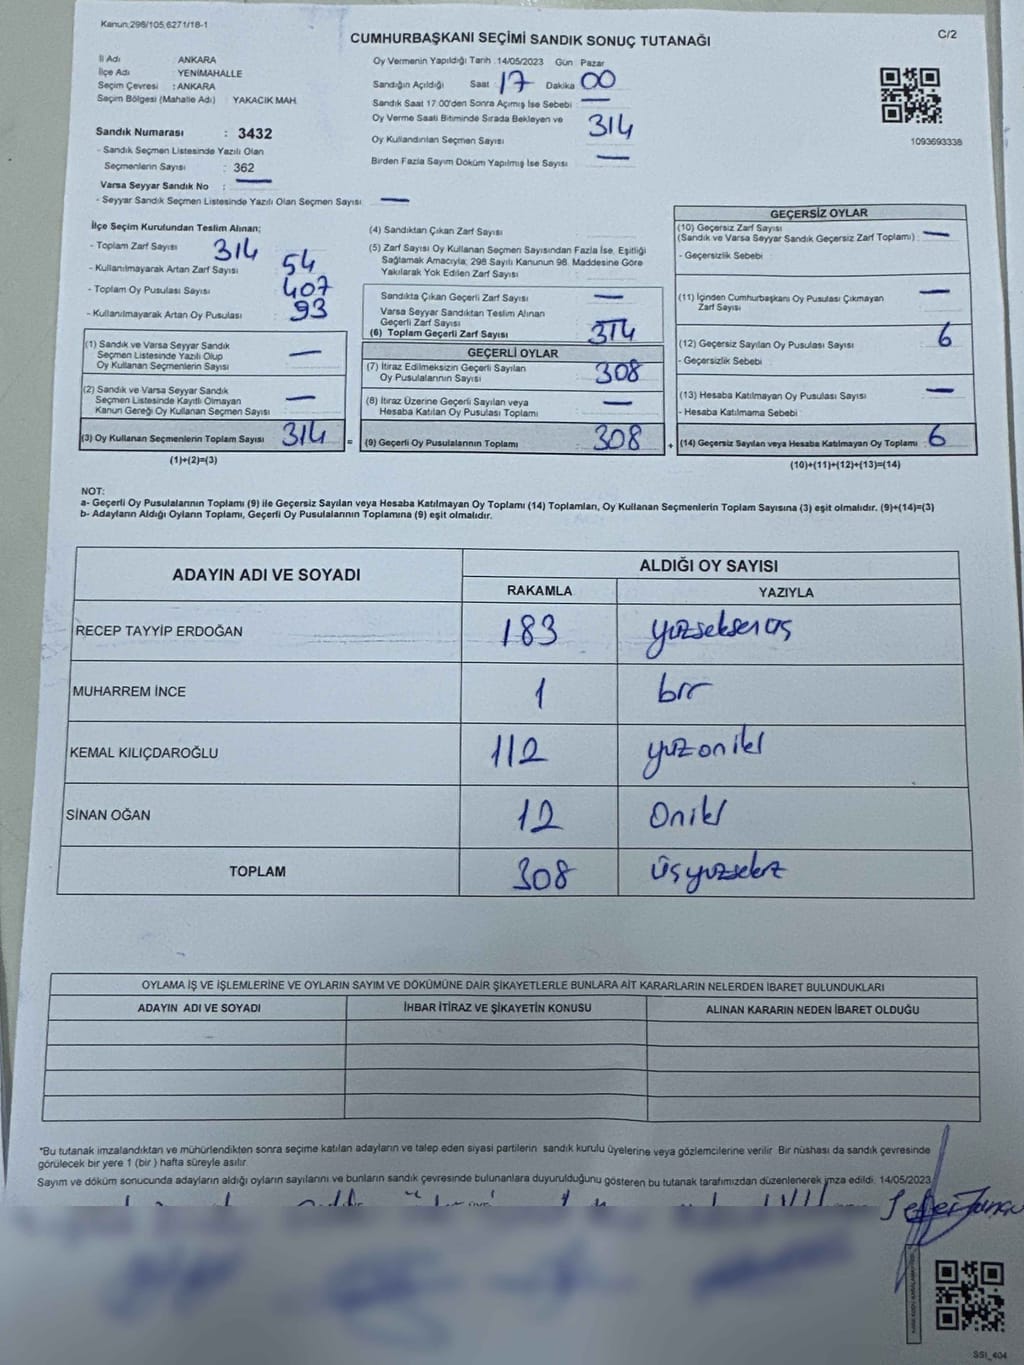 Kanun:298/105,6271/18-1
C/2
CUMHURBAŞKANI SEÇİMİ SANDIK SONUÇ TUTANAĞI
İl Adı : ANKARA
İlçe Adı : YENİMAHALLE
Seçim Çevresi : ANKARA
Seçim Bölgesi (Mahalle Adı) : YAKACIK MAH.
Sandık Numarası : 3432
- Sandık Seçmen Listesinde Yazılı Olan
Seçmenlerin Sayısı : 362
Varsa Seyyar Sandık No : —
- Seyyar Sandık Seçmen Listesinde Yazılı Olan Seçmen Sayısı : —
Oy Vermenin Yapıldığı Tarih :14/05/2023 Gün : Pazar
Sandığın Açıldığı Saat : 17 Dakika : 00
Sandık Saat 17.00'den Sonra Açımış İse Sebebi : —
Oy Verme Saati Bitiminde Sırada Bekleyen ve
Oy Kullandırılan Seçmen Sayısı : 314
Birden Fazla Sayım Döküm Yapılmış İse Sayısı : —
1093693338
İlçe Seçim Kurulundan Teslim Alınan;
- Toplam Zarf Sayısı : 314
- Kullanılmayarak Artan Zarf Sayısı : 54
- Toplam Oy Pusulası Sayısı : 407
- Kullanılmayarak Artan Oy Pusulası : 93
(1) Sandık ve Varsa Seyyar Sandık
Seçmen Listesinde Yazılı Olup
Oy Kullanan Seçmenlerin Sayısı : —
(2) Sandık ve Varsa Seyyar Sandık
Seçmen Listesinde Kayıtlı Olmayan
Kanun Gereği Oy Kullanan Seçmen Sayısı : —
(3) Oy Kullanan Seçmenlerin Toplam Sayısı : 314 =
(1)+(2)=(3)
(4) Sandıktan Çıkan Zarf Sayısı :
(5) Zarf Sayısı Oy Kullanan Seçmen Sayısından Fazla İse, Eşitliği
Sağlamak Amacıyla; 298 Sayılı Kanunun 98. Maddesine Göre
Yakılarak Yok Edilen Zarf Sayısı :
Sandıkta Çıkan Geçerli Zarf Sayısı : —
Varsa Seyyar Sandıktan Teslim Alınan
Geçerli Zarf Sayısı :
(6) Toplam Geçerli Zarf Sayısı : 314
GEÇERLİ OYLAR
(7) İtiraz Edilmeksizin Geçerli Sayılan
Oy Pusulalarının Sayısı : 308
(8) İtiraz Üzerine Geçerli Sayılan veya
Hesaba Katılan Oy Pusulası Toplamı : —
(9) Geçerli Oy Pusulalarının Toplamı : 308 +
GEÇERSİZ OYLAR
(10) Geçersiz Zarf Sayısı
(Sandık ve Varsa Seyyar Sandık Geçersiz Zarf Toplamı) : —
- Geçersizlik Sebebi :
(11) İçinden Cumhurbaşkanı Oy Pusulası Çıkmayan
Zarf Sayısı : —
(12) Geçersiz Sayılan Oy Pusulası Sayısı : 6
- Geçersizlik Sebebi :
(13) Hesaba Katılmayan Oy Pusulası Sayısı : —
- Hesaba Katılmama Sebebi :
(14) Geçersiz Sayılan veya Hesaba Katılmayan Oy Toplamı : 6
(10)+(11)+(12)+(13)=(14)
NOT:
a- Geçerli Oy Pusulalarının Toplamı (9) ile Geçersiz Sayılan veya Hesaba Katılmayan Oy Toplamı (14) Toplamları, Oy Kullanan Seçmenlerin Toplam Sayısına (3) eşit olmalıdır. (9)+(14)=(3)
b- Adayların Aldığı Oyların Toplamı, Geçerli Oy Pusulalarının Toplamına (9) eşit olmalıdır.
ADAYIN ADI VE SOYADI ALDIĞI OY SAYISI
RAKAMLA YAZIYLA
RECEP TAYYİP ERDOĞAN 183 yüzseksenüç
MUHARREM İNCE 1 bir
KEMAL KILIÇDAROĞLU 112 yüzoniki
SİNAN OĞAN 12 Oniki
TOPLAM 308 üçyüzsekiz
OYLAMA İŞ VE İŞLEMLERİNE VE OYLARIN SAYIM VE DÖKÜMÜNE DAİR ŞİKAYETLERLE BUNLARA AİT KARARLARIN NELERDEN İBARET BULUNDUKLARI
ADAYIN ADI VE SOYADI İHBAR İTİRAZ VE ŞİKAYETİN KONUSU ALINAN KARARIN NEDEN İBARET OLDUĞU
*Bu tutanak imzalandıktan ve mühürlendikten sonra seçime katılan adayların ve talep eden siyasi partilerin sandık kurulu üyelerine veya gözlemcilerine verilir. Bir nüshası da sandık çevresinde
görülecek bir yere 1 (bir ) hafta süreyle asılır.
Sayım ve döküm sonucunda adayların aldığı oyların sayılarını ve bunların sandık çevresinde bulunanlara duyurulduğunu gösteren bu tutanak tarafımızdan düzenlenerek imza edildi. 14/05/2023
SSI_404